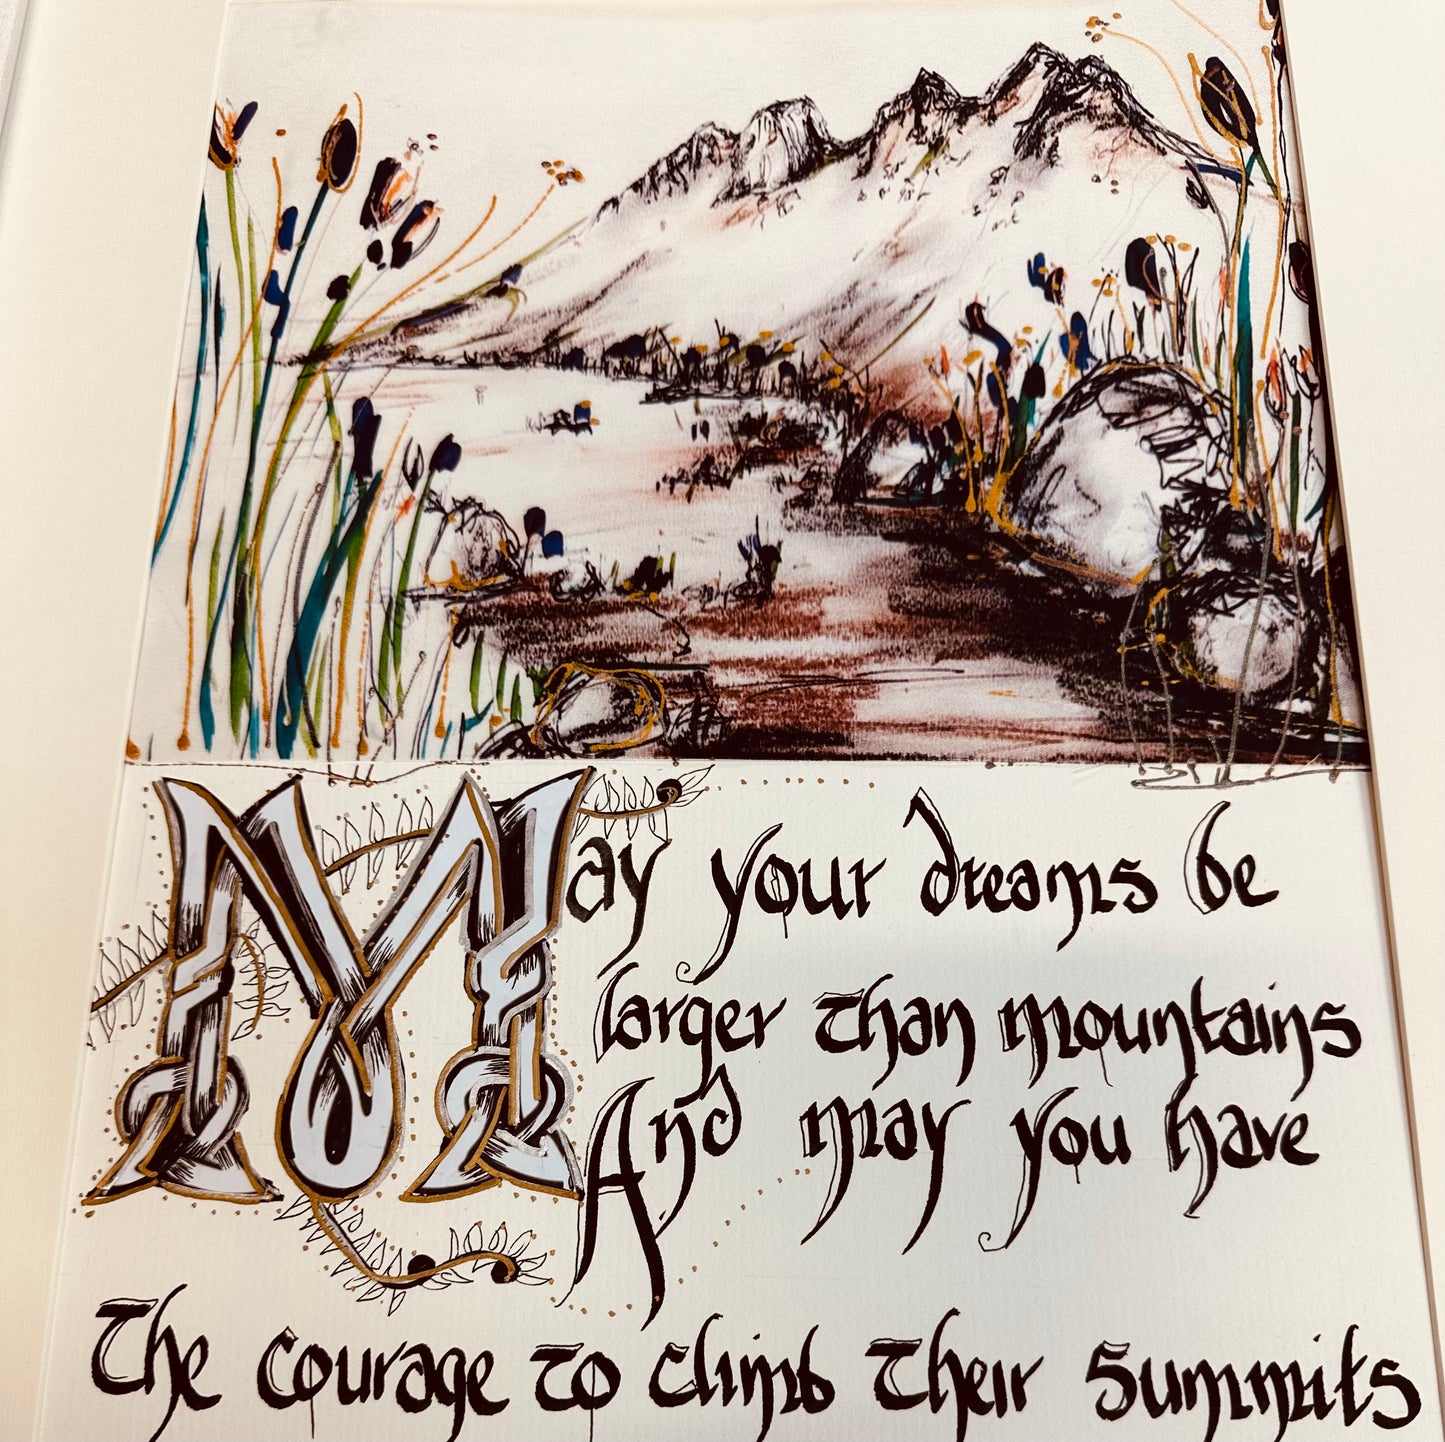 May your dreams be
larger than mountains
And may you have
The courage to climb their summits